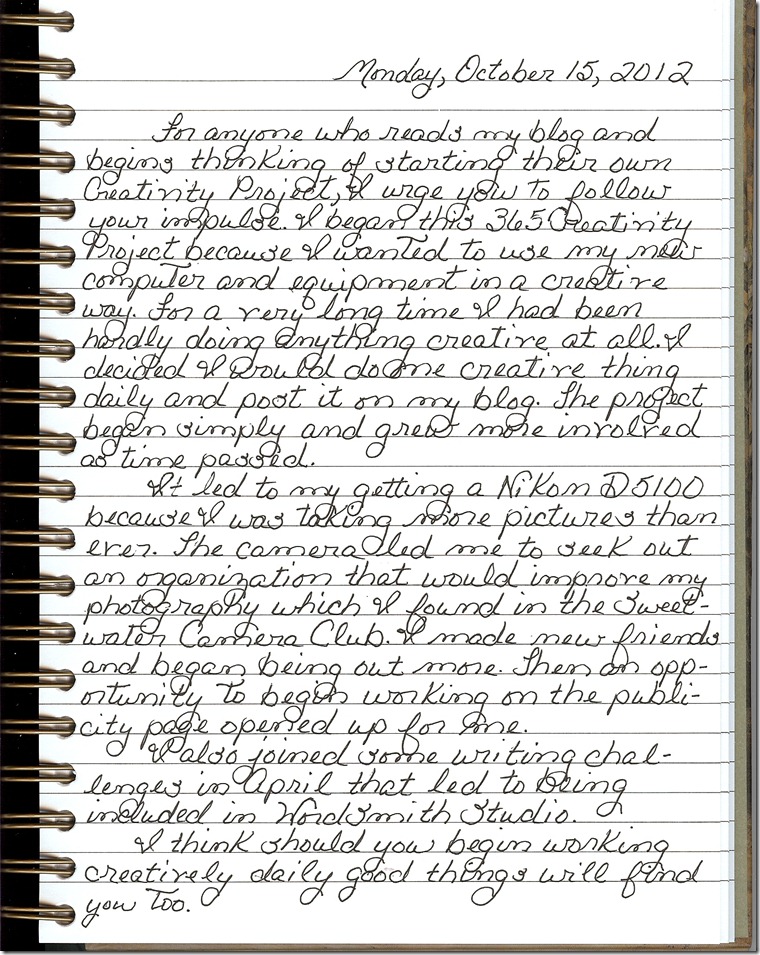 Monday, October 15, 2012
For anyone who reads my blog and
begins thinking of starting their own
Creativity Project, I urge you to follow
your impulse. I began this 365 Creativity
Project because I wanted to use my new
computer and equipment in a creative
way. For a very long time I had been
hardly doing anything creative at all. I
decided I would do one creative thing
daily and post it on my blog. The project
began simply and grew more involved
as time passed.
It led to my getting a Nikon D5100
because I was taking more pictures than
ever. The camera led me to seek out
an organization that would improve my
photography which I found in the Sweet-
water Camera Club. I made new friends
and began being out more. Then an opp-
ortunity to begin working on the publi-
city page opened up for me.
I also joined some writing chal-
lenges in April that led to being
included in Wordsmith Studio.
I think should you begin working
creatively daily good things will find
you too.